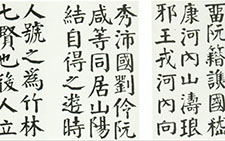 畱阮籍譙國嵇
康河內山濤琅
邪王戎河內向
秀沛國劉伶阮
咸等同居山陽
結自得之遊時
人號之為竹林
七賢也後人立